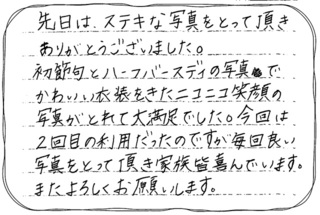 先日は、ステキな写真をとって頂き
ありがとうございました。
初節句とハーフバースディの写真で
かわいい衣装をきたニコニコ笑顔の
写真がとれて大満足でした。今回は
2回目の利用だったのですが毎回良い
写真をとって頂き家族皆喜んでいます。
またよろしくお願いします。